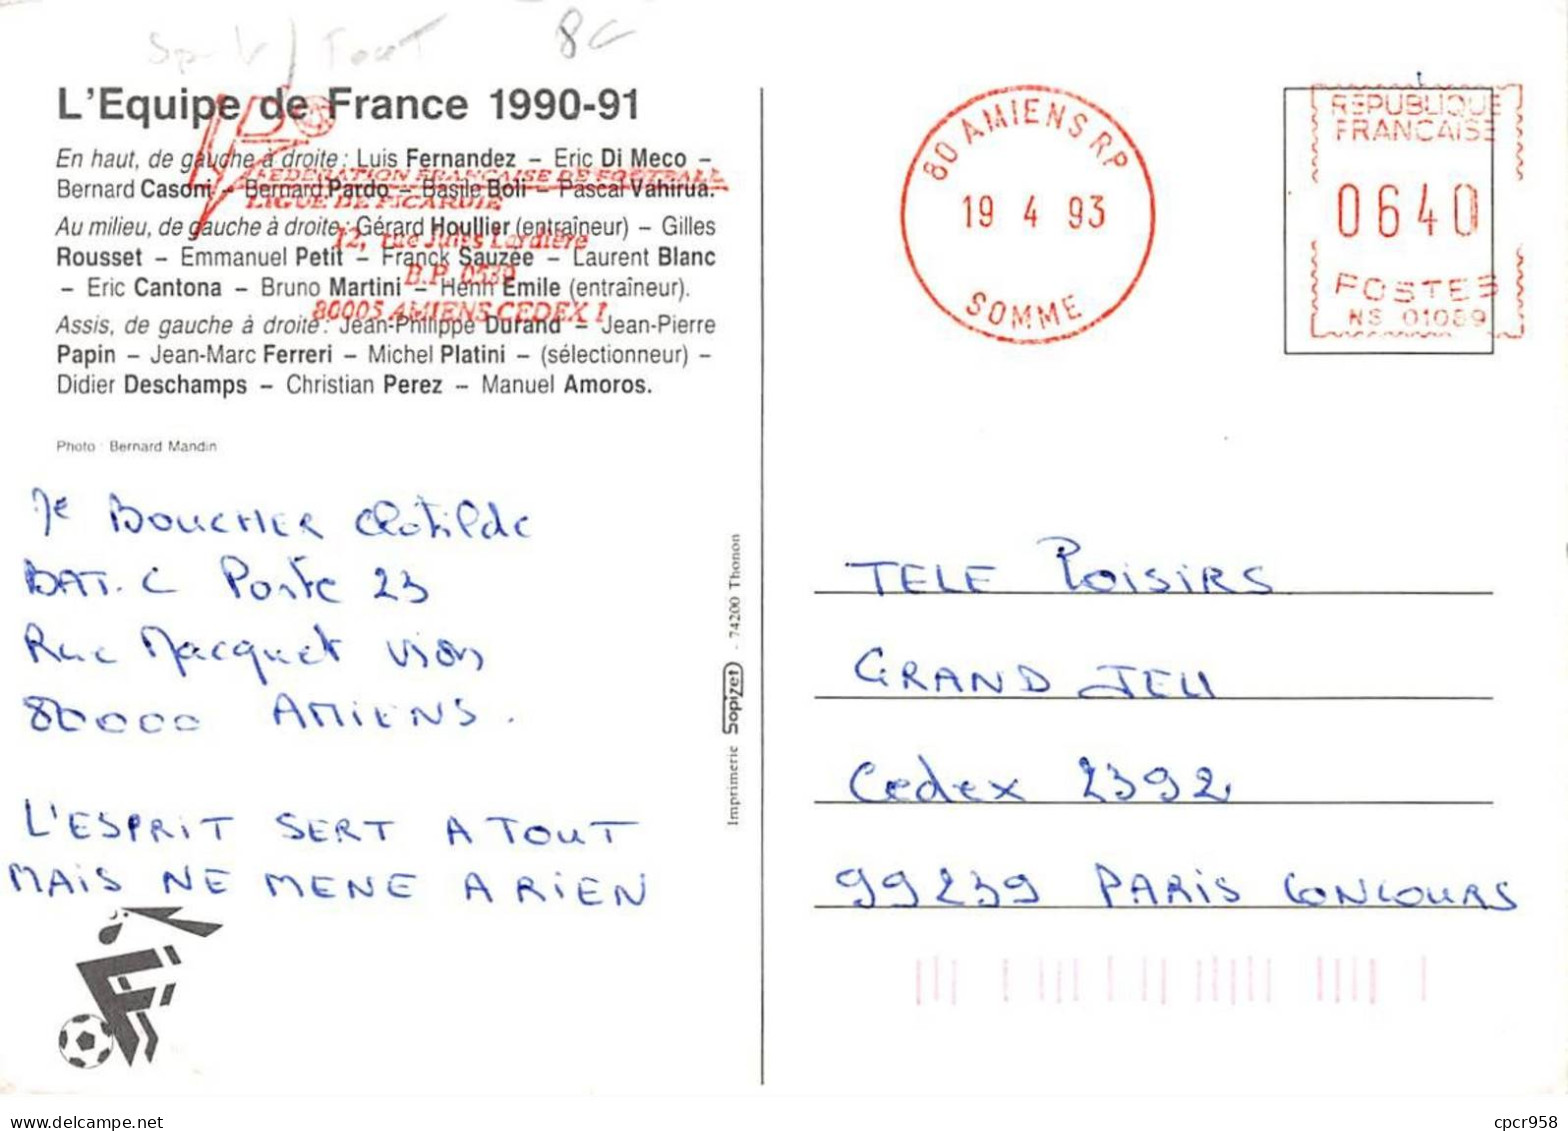 8€
L'Equipe de France 1990-91
En haut, de gauche à droite : Luis Fernandez – Eric Di Meco –
Bernard Casoni – Bernard Pardo – Basile Boli – Pascal Vahirua.
Au milieu, de gauche à droite : Gérard Houllier (entraîneur) – Gilles
Rousset – Emmanuel Petit – Franck Sauzée – Laurent Blanc
– Eric Cantona – Bruno Martini – Henri Emile (entraîneur).
Assis, de gauche à droite : Jean-Philippe Durand – Jean-Pierre
Papin – Jean-Marc Ferreri – Michel Platini – (sélectionneur) –
Didier Deschamps – Christian Perez – Manuel Amoros.
FEDERATION FRANCAISE DE FOOTBALL
LIGUE DE PICARDIE
12, rue Jules Lardière
B.P. 0539
80005 AMIENS CEDEX 1
Photo : Bernard Mandin
BOUCHER Clotilde
BAT. C Porte 23
Rue Macquet vion
80000 AMIENS.
L'ESPRIT SERT A TOUT
MAIS NE MENE A RIEN
Imprimerie Sopizet - 74200 Thonon
80 AMIENS RP
19 4 93
SOMME
REPUBLIQUE
FRANCAISE
0640
POSTES
NS 01089
TELE Loisirs
GRAND JEU
Cedex 2392
99239 PARIS CONCOURS
cpcr958